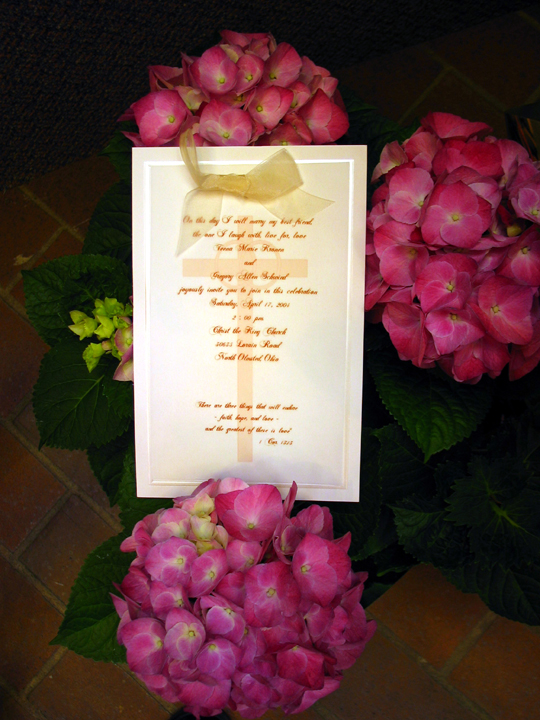 On this day I will marry my best friend,
the one I laugh with, live for, love
Marie
and
Gregory Allen
joyously invite you to join in this celebration
Saturday, April 17, 2004
2:00 pm
Christ the King Church
Lorain Road
North Olmsted, Ohio
There are three things that will endure
- faith, hope, and love -
and the greatest of these is love"
1 Cor. 13:13